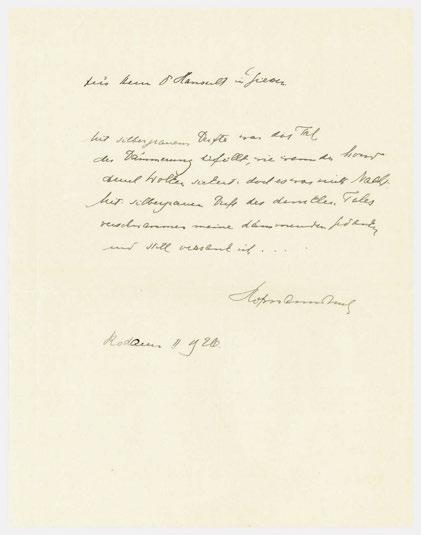 Herrn
Mit silbergrauem Dufte war das Tal
der Dämmerung erfüllt, wie wenn der Mond
durch Wolken sickert. doch es war nicht Nacht.
Mit silbergrauem Duft des dunklen Tales
verschwammen meine dämmernden Gedanken
und still versank ich . . . .
Hofmannsthal
Rodaun II